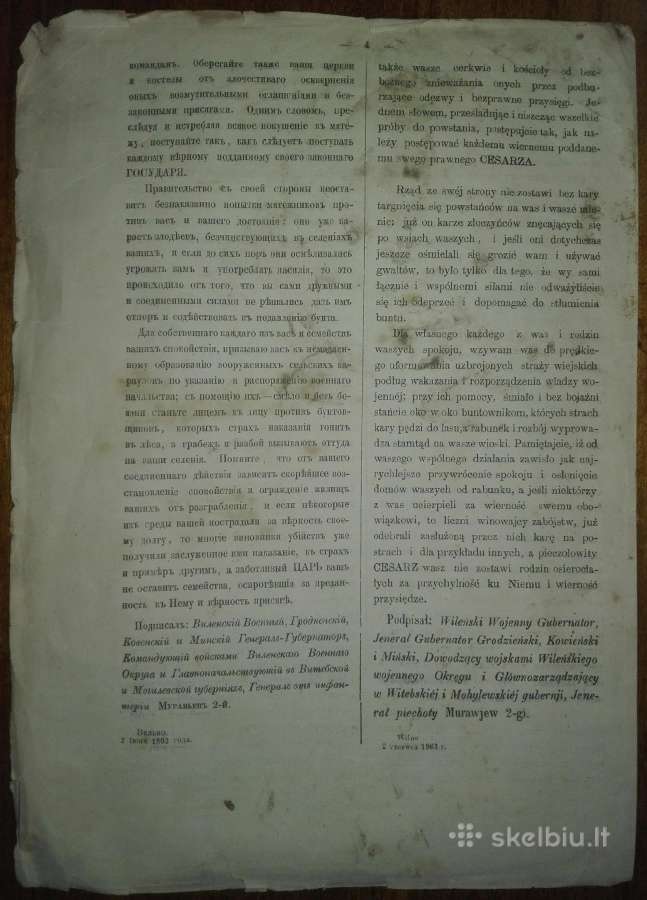 — 4 —
командамъ. Оберегайте также ваши церкви
и костелы отъ злочестиваго оскверненія
оныхъ возмутительными оглашеніями и без-
законными присягами. Однимъ словомъ, пре-
слѣдуя и истребляя всякое покушеніе къ мяте-
жу, поступайте такъ, какъ слѣдуетъ поступать
каждому вѣрному подданному своего законнаго
ГОСУДАРЯ.
Правительство съ своей стороны неоста-
витъ безнаказанно попытки мятежниковъ про-
тивъ васъ и вашего достоянія: оно уже ка-
раетъ злодѣевъ, безчинствующихъ въ селеніяхъ
вашихъ, и если до сихъ поръ они осмѣливались
угрожать вамъ и употреблять насилія, то это
происходило отъ того, что вы сами дружными
и соединенными силами не рѣшались дать имъ
отпоръ и содѣйствовать къ подавленію бунта.
Для собственнаго каждаго изъ васъ и семействъ
вашихъ спокойствія, призываю васъ къ немедлен-
ному образованію вооруженныхъ сельскихъ ка-
рауловъ по указанію и распоряженію военнаго
начальства; съ помощію ихъ—смѣло и безъ бо-
язни станьте лицемъ къ лицу противъ бунтов-
щиковъ, которыхъ страхъ наказанія гонитъ
въ лѣса, а грабежъ и разбой вызываютъ оттуда
на ваши селенія. Помните, что отъ вашего
соединеннаго дѣйствія зависятъ скорѣйшее воз-
становленіе спокойствія и огражденіе жилищъ
вашихъ отъ разграбленія, и если нѣкоторые
изъ среды вашей пострадали за вѣрность свое-
му долгу, то многіе виновники убійствъ уже
получили заслуженное ими наказаніе, къ страху
и примѣръ другимъ, а заботливый ЦАРЬ вашъ
не оставитъ семейства, осиротѣвшія за предан-
ность къ Нему и вѣрность присягѣ.
Подписалъ: Виленскій Военный, Гродненскій,
Ковенскій и Минскій Генералъ-Губернаторъ,
Командующій войсками Виленскаго Военнаго
Округа и Главноначальствующій въ Витебской
и Могилевской губерніяхъ, Генералъ отъ инфан-
теріи Муравьевъ 2-й.
Вильно.
2 Іюня 1863 года.
także wasze cerkwie i kościoły od bez-
bożnego znieważania onych przez podbu-
rzające odezwy i bezprawne przysięgi. Je-
dnem słowem, prześladując i niszcząc wszelkie
próby do powstania, postępujcie tak, jak na-
leży postępować każdemu wiernemu poddane-
mu swego prawnego CESARZA.
Rząd ze swéj strony nie zostawi bez kary
targnięcia się powstańców na was i wasze mie-
nie; już on karze złoczyńców znęcających się
po wsiach waszych, i jeśli oni dotychczas
jeszcze ośmielali się grozić wam i używać
gwałtów, to było tylko dla tego, że wy sami
łącznie i wspólnemi siłami nie odważyliście
się ich odeprzeć i dopomagać do stłumienia
buntu.
Dla własnego każdego z was i rodzin
waszych spokoju, wzywam was do prędkie-
go uformowania uzbrojonych straży wiejskich
podług wskazania i rozporządzenia władzy wo-
jennéj; przy ich pomocy, śmiało i bez bojaźni
stańcie oko w oko buntownikom, których strach
kary pędzi do lasu, a rabunek i rozbój wyprowa-
dza stamtąd na wasze wioski. Pamiętajcie, iż od
waszego wspólnego działania zawisło jak naj-
rychlejsze przywrócenie spokoju i osłonięcie
domów waszych od rabunku, a jeśli niektórzy
z was ucierpieli za wierność swemu obo-
wiązkowi, to liczni winowajcy zabójstw, już
odebrali zasłużoną przez nich karę na po-
strach i dla przykładu innych, a pieczołowity
CESARZ wasz nie zostawi rodzin osieroca-
łych za przychylność ku Niemu i wierność
przysiędze.
Podpisał: Wileński Wojenny Gubernator,
Jenerał Gubernator Grodzieński, Kowieński
i Miński, Dowodzący wojskami Wileńskiego
wojennego Okręgu i Głównozarządzający
w Witebskiéj i Mohylewskiéj gubernji, Jene-
rał piechoty Murawjew 2-gi.
Wilno
2 czerwca 1863 r.
skelbiu.lt